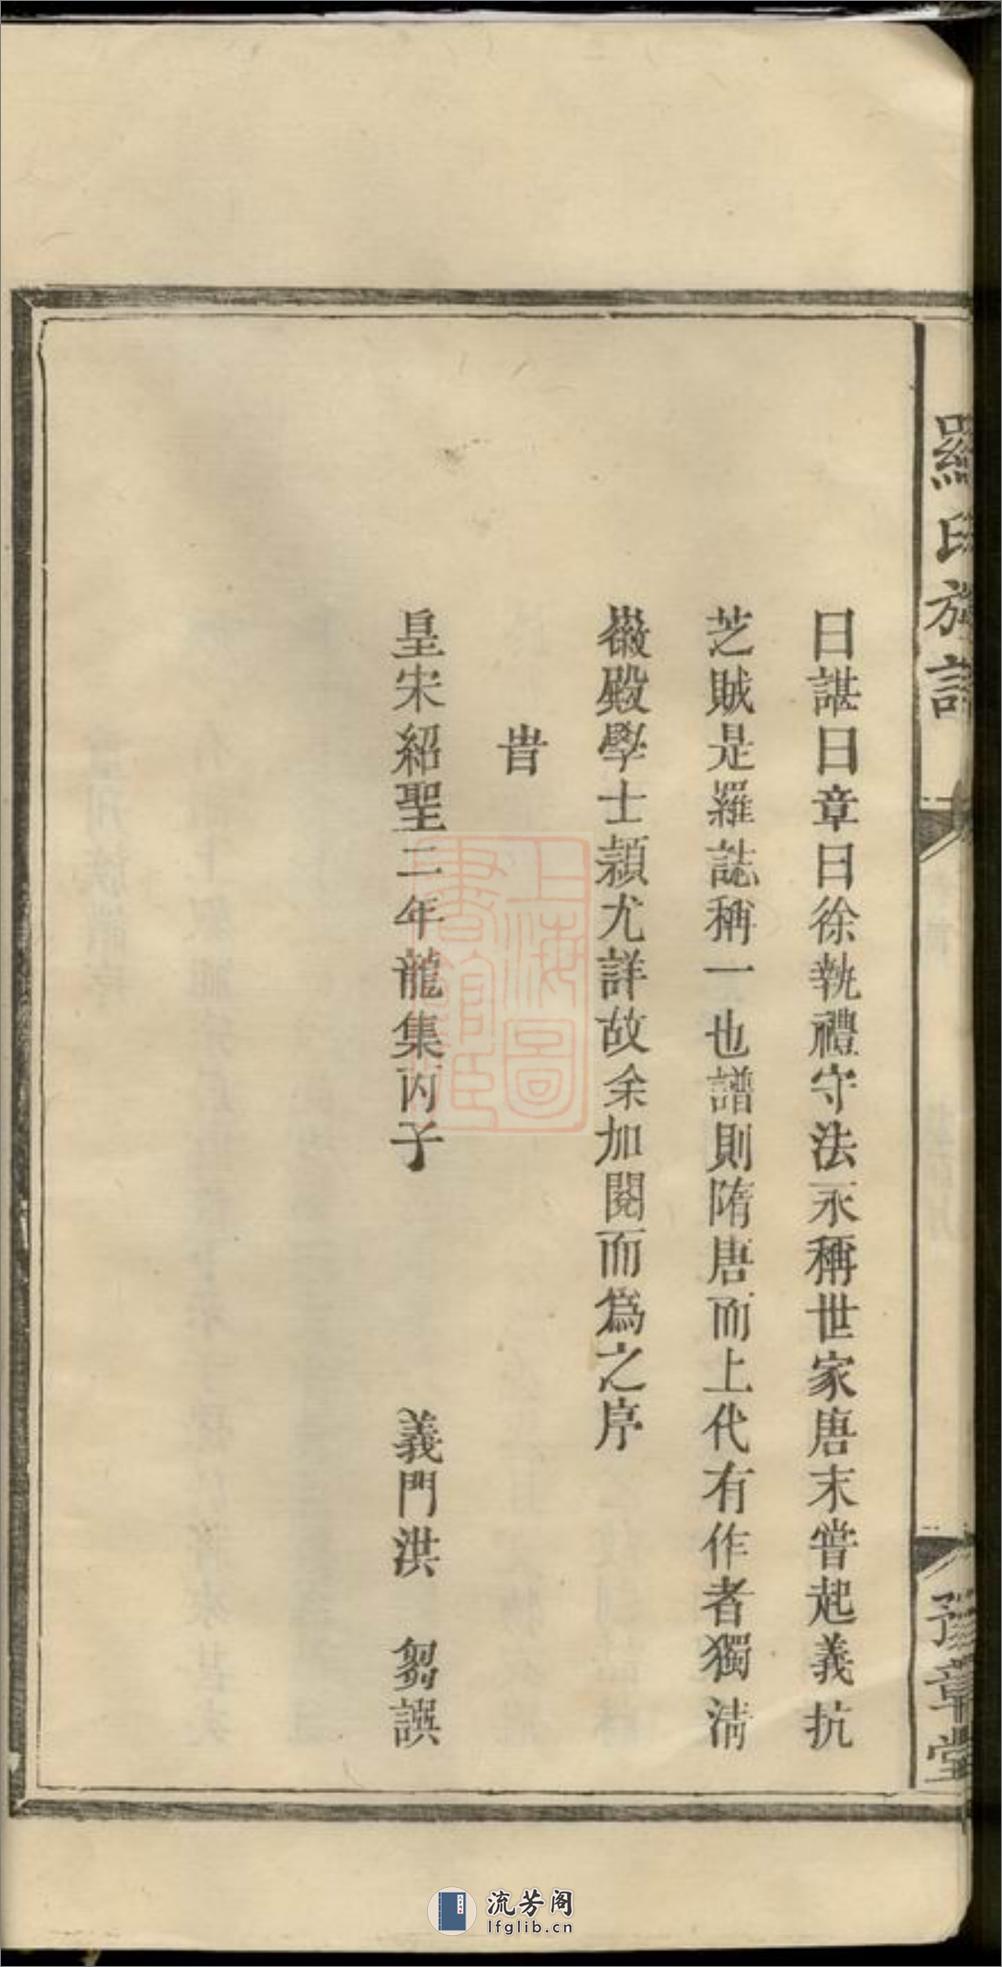 羅氏族譜
豫章堂
曰諶曰章曰徐執禮守法永稱世家唐末甞起義抗
芝賊是羅誌稱一也譜則隋唐而上代有作者獨淸
徽殿學士頴尤詳故余加閱而爲之序
旹
皇宋紹聖二年龍集丙子
義門洪 芻譔
上海圖書館藏
流芳阁
lfglib.cn